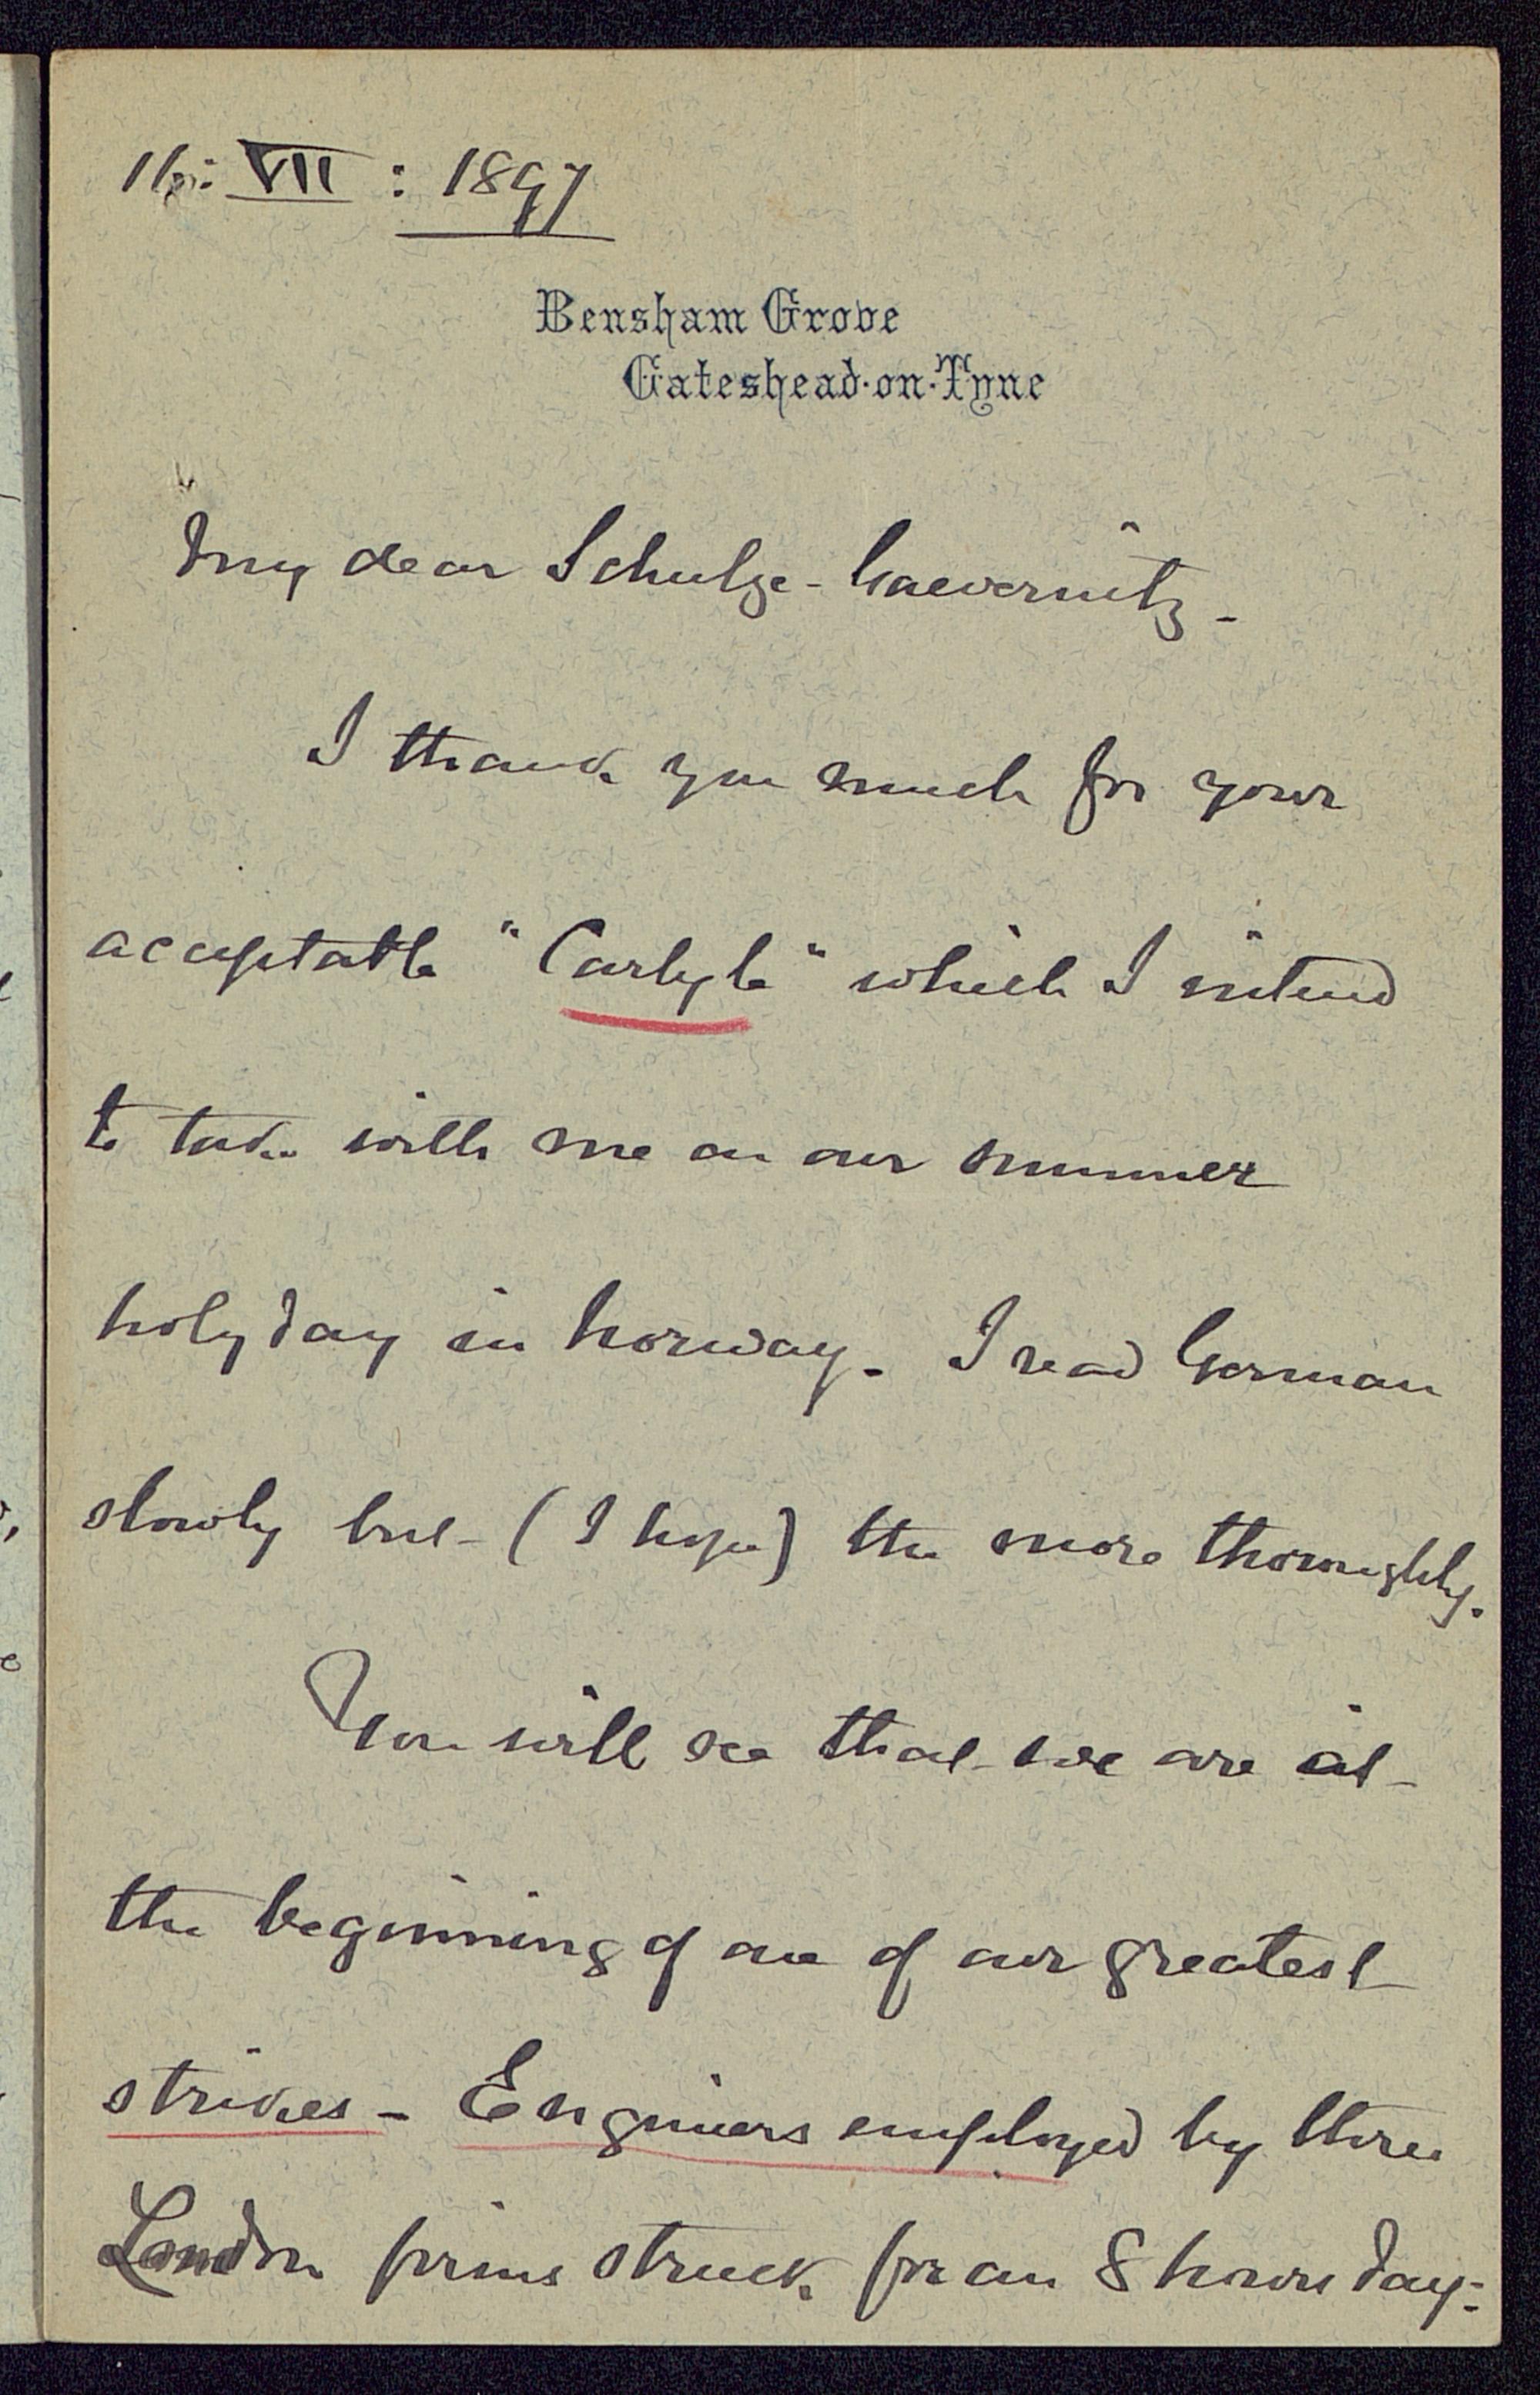 16: VII : 1897
Bensham Grove
Gateshead-on-Tyne
My dear Schulze-Gaevernitz -
I thank you much for your
acceptable "Carlyle" which I intend
to take with me on our summer
holyday in Norway. I read German
slowly but (I hope) the more thoroughly.
You will see that we are at
the beginning of one of our greatest
strikes - Engineers employed by three
London firms struck for an 8 hours day: